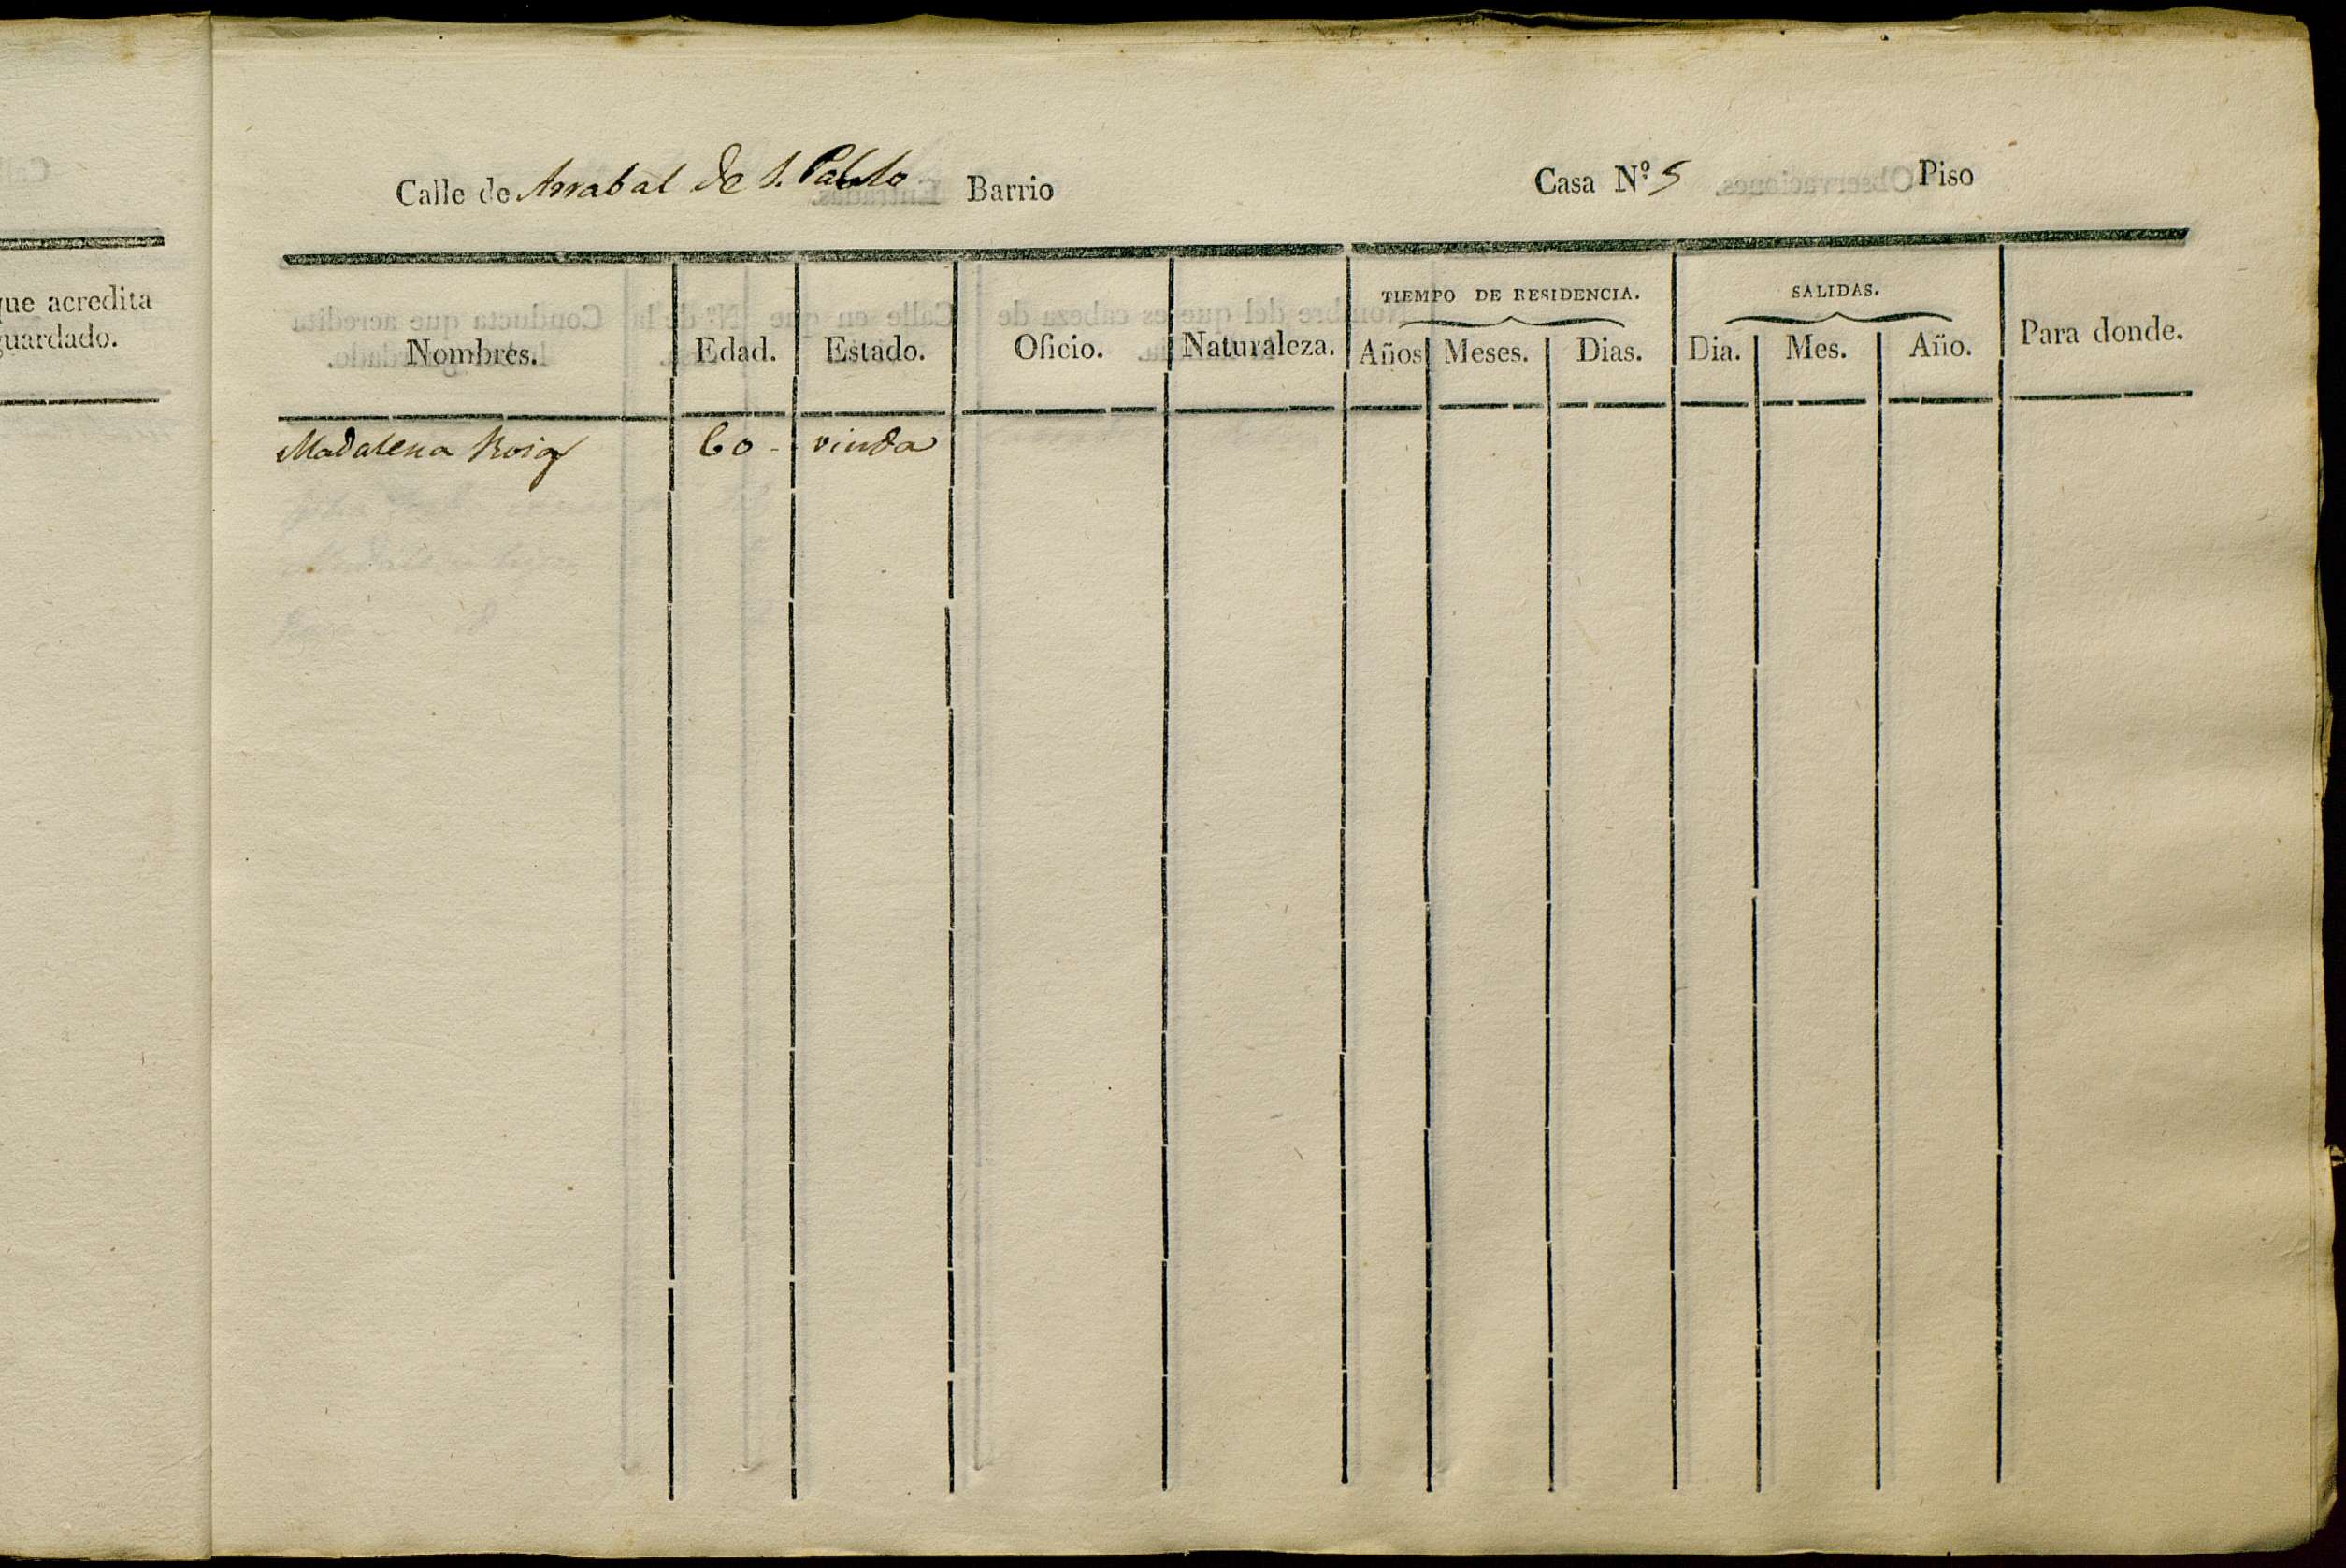 que acredita
guardado.
Calle de Arrabal de S. Pablo Barrio Casa Nº 5 Piso
TIEMPO DE RESIDENCIA. SALIDAS.
Nombres. Edad. Estado. Oficio. Naturaleza. Años Meses. Dias. Dia. Mes. Año. Para donde.
Madalena Roig 60 - viuda